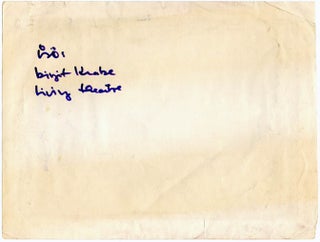 birgit Knabe
living theatre